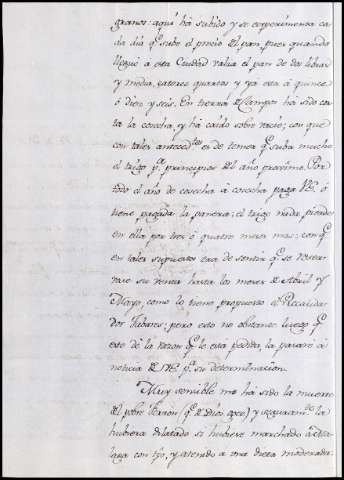 granos: aquí há subido y se experimenta ca
da dia q.e sube el precio del pan, pues quando
llegué a esta Ciudad valia el pan de dos libras
y media, catorce quartos y ya está á quince
ó diez y seis. En tierra de Campos há sido cor
ta la cosecha, y há caido sobre vacio; con que
con tales anteced.tes es de temer q.e suba mucho
el trigo p.a principios del año proximo. Por
todo el año de cosecha á cosecha paga ó
tiene pagada la panera: el trigo nada pierde
en ella por tres ó quatro meses mas; con q.e
en tales supuestos era de sentir q.e se reser
vase su venta hasta los meses de Abril y
Mayo, como lo tiene propuesto el Recauda
dor Tubares; pero esto no obstante, luego q.e
esté dé la razon q.e le está pedida, la pasaré á
noticia de p.a su determinacion.
Muy sensible me há sido la muerte
del pobre (q.e de Dios goce) y seguram.te la
hubiera dilatado si hubiese marchado á
laga con tpo, y atenido a una dieta moderada.